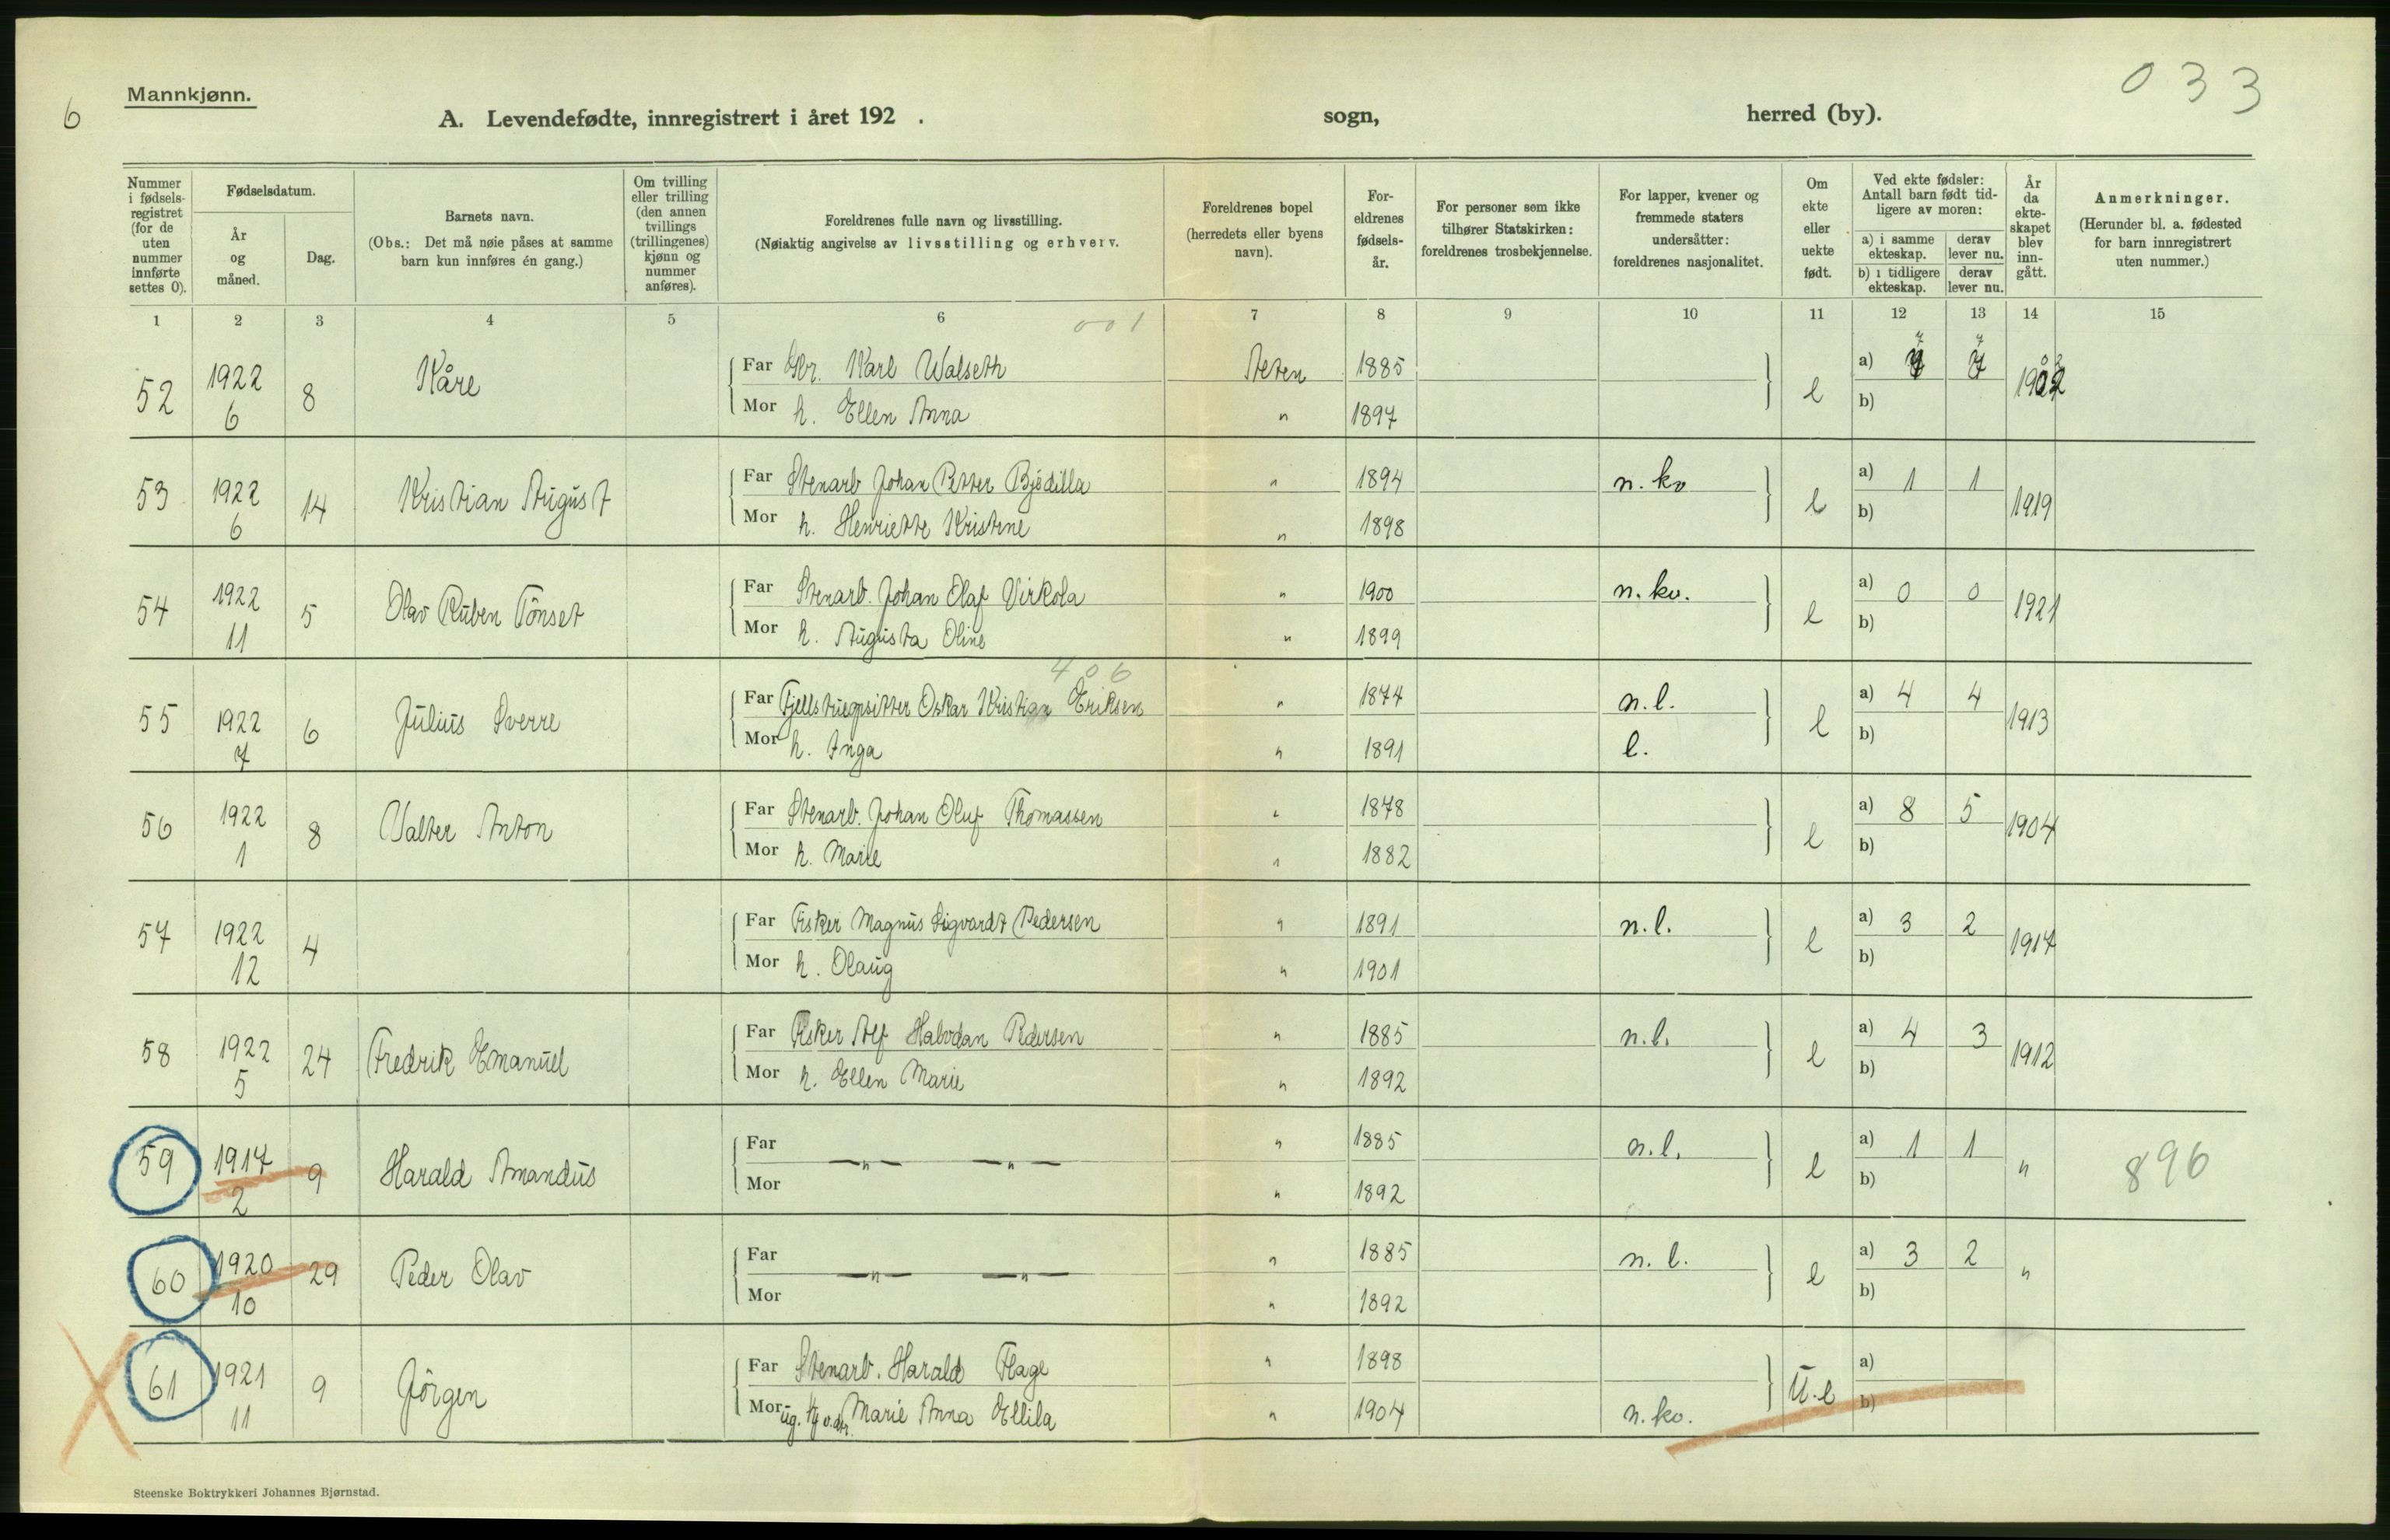 Mannkjønn.
6
033
A. Levendefødte, innregistrert i året 192 . sogn, herred (by).
Nummer i fødselsregistret (for de uten nummer innførte settes 0).
Fødselsdatum.
År og måned.
Dag.
Barnets navn.
(Obs.: Det må nøie påses at samme barn kun innføres én gang.)
Om tvilling eller trilling (den annen tvillings (trillingenes) kjønn og nummer anføres).
Foreldrenes fulle navn og livsstilling.
(Nøiaktig angivelse av livsstilling og erhverv.
Foreldrenes bopel (herredets eller byens navn).
Foreldrenes fødselsår.
For personer som ikke tilhører Statskirken: foreldrenes trosbekjennelse.
For lapper, kvener og fremmede staters undersåtter: foreldrenes nasjonalitet.
Om ekte eller uekte født.
Ved ekte fødsler: Antall barn født tidligere av moren:
a) i samme ekteskap. derav lever nu.
b) i tidligere ekteskap. derav lever nu.
År da ekteskapet blev inngått.
Anmerkninger.
(Herunder bl. a. fødested for barn innregistrert uten nummer.)
1 2 3 4 5 6 7 8 9 10 11 12 13 14 15
001
52 1922 6 8 Kåre
Far Karl Walseth 1885
Mor h. Ellen Anna " 1897
e a) 7 7 b)
53 1922 6 14 Kristian August
Far Stenarb Johan Petter Bjödilla " 1894 n. kv
Mor h. Henriette Kristine " 1898
e a) 1 1 b) 1919
54 1922 11 5 Olav Ruben Tönset
Far Stenarb. Johan Olaf Virkola " 1900 n. kv.
Mor h. Augusta Oline " 1899
e a) 0 0 b) 1921
406
55 1922 7 6 Julius Sverre
Far Oskar Kristian Eriksen " 1874 n. l.
Mor h. Inga " 1891 l.
e a) 4 4 b) 1913
56 1922 1 8 Valter Anton
Far Stenarb. Johan Oluf Thomassen " 1878
Mor h. Marie " 1882
e a) 8 5 b) 1904
57 1922 12 4
Far Fisker Magnus Sigvardt Pedersen " 1891 n. l.
Mor h. Olaug " 1901
e a) 3 2 b) 1917
58 1922 5 24 Fredrik Emanuel
Far Fisker Alf Halvdan Pedersen " 1885 n. l.
Mor h. Ellen Marie " 1892
e a) 4 3 b) 1912
59 1917 2 9 Harald Amandus
Far — " — — " — " 1885 n. l.
Mor " 1892
e a) 1 1 b) " 896
60 1920 10 29 Peder Olav
Far — " — — " — " 1885 n. l.
Mor " 1892
e a) 3 2 b) "
61 1921 11 9 Jörgen
Far Stenarb. Harald Flage " 1898
Mor ug. Marie Anna Ellila " 1904 n. kv.
U. e a) b)
Steenske Boktrykkeri Johannes Bjørnstad.